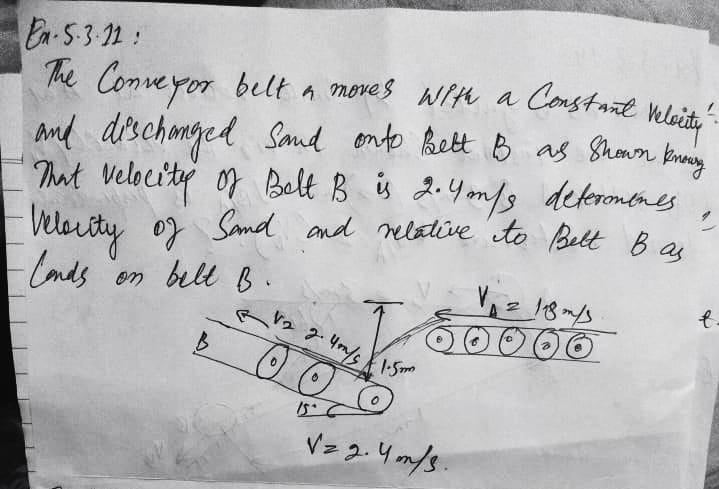 Ex-5.3.11 :
The Conveyor belt a moves with a Constant Velocity
and dischanged Sand onto Belt B as Shown knowing
That Velocity of Belt B is 2.4 m/s determines
Velocity of Sand and relative to Belt B as
Lands on belt B.
V2 2.4 m/s
VA = 1.8 m/s
B
1.5m
15°
V = 2.4 m/s.